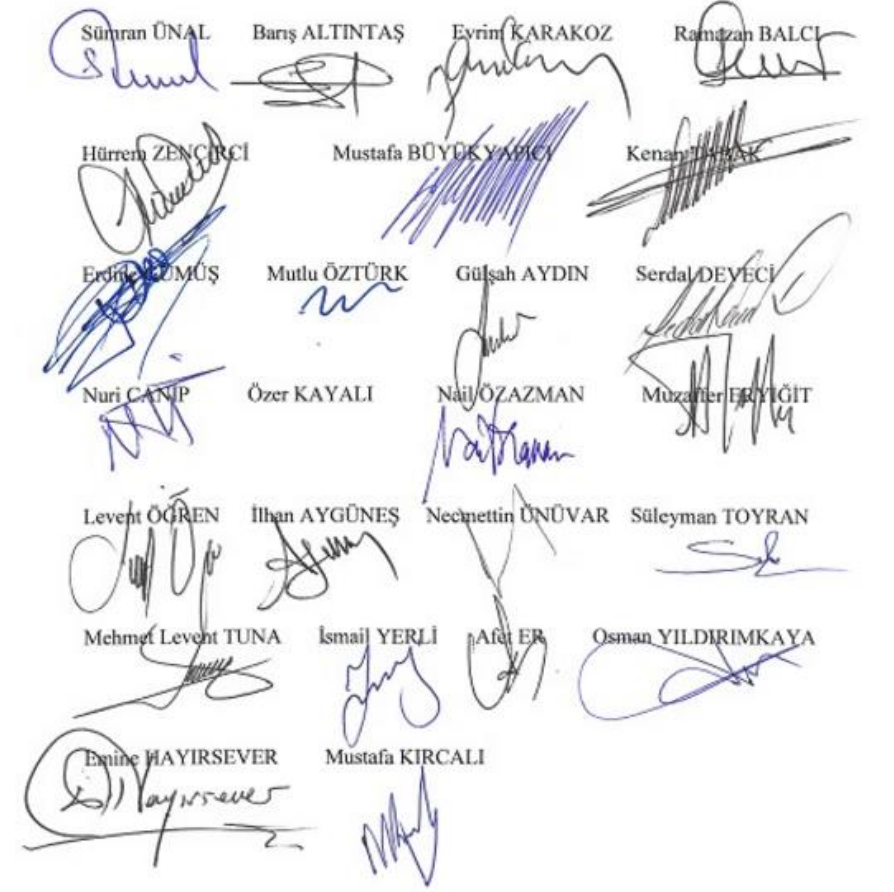 Sümran ÜNAL Barış ALTINTAŞ Evrim KARAKOZ Ramazan BALCI
Hürrem ZENCİRCİ Mustafa BÜYÜKYAPICI Kenan TABAK
Erdinç GÜMÜŞ Mutlu ÖZTÜRK Gülşah AYDIN Serdal DEVECİ
Nuri CANİP Özer KAYALI Nail ÖZAZMAN Muzaffer ERYİĞİT
Levent ÖĞREN İlhan AYGÜNEŞ Necmettin ÜNÜVAR Süleyman TOYRAN
Mehmet Levent TUNA İsmail YERLİ Afet ER Osman YILDIRIMKAYA
Emine HAYIRSEVER Mustafa KIRCALI